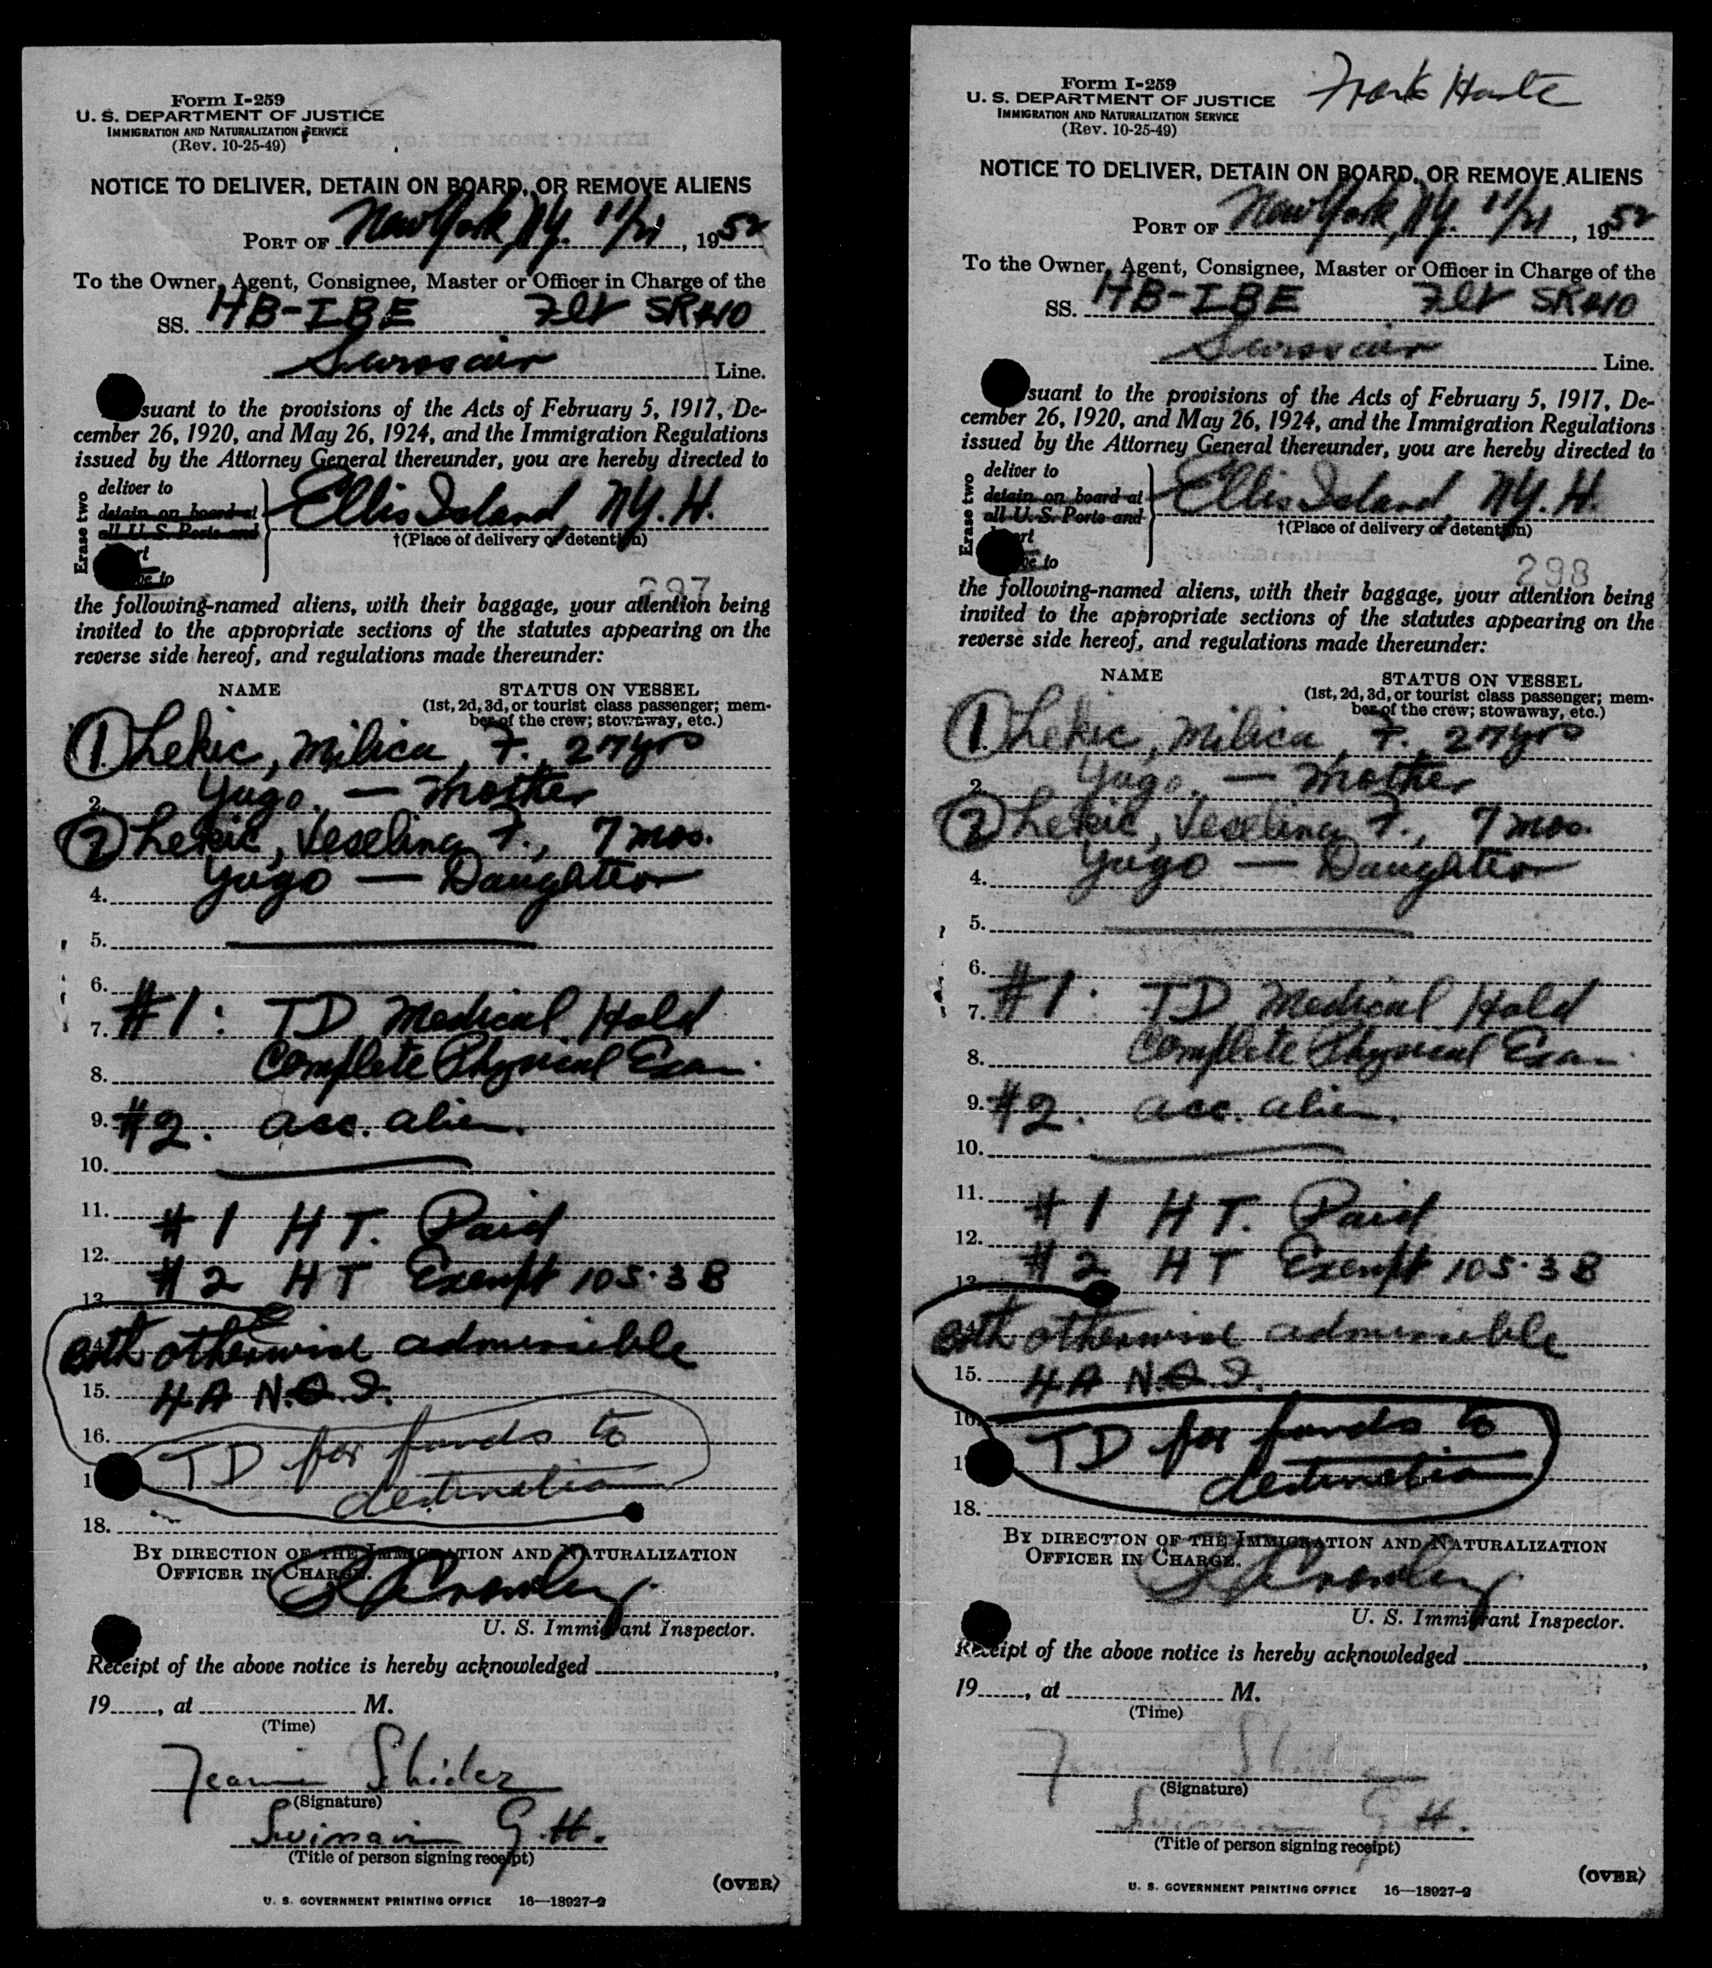 Form I-259
U. S. DEPARTMENT OF JUSTICE
IMMIGRATION AND NATURALIZATION SERVICE
(Rev. 10-25-49)
NOTICE TO DELIVER, DETAIN ON BOARD, OR REMOVE ALIENS
PORT OF New York, NY. 11/21, 1952
To the Owner, Agent, Consignee, Master or Officer in Charge of the
SS. HB-IBE Flt SR 410
Swissair Line.
suant to the provisions of the Acts of February 5, 1917, De-
cember 26, 1920, and May 26, 1924, and the Immigration Regulations
issued by the Attorney General thereunder, you are hereby directed to
Erase two
deliver to
detain on board at
all U. S. Ports and
Ellis Island, NY. H.
†(Place of delivery or detention)
to
297
the following-named aliens, with their baggage, your attention being
invited to the appropriate sections of the statutes appearing on the
reverse side hereof, and regulations made thereunder:
NAME STATUS ON VESSEL
(1st, 2d, 3d, or tourist class passenger; mem-
ber of the crew; stowaway, etc.)
1. Lekic, Milica, F., 27 yrs
2. Yugo. — Mother
2 Lekic, Veselina F., 7 mos.
4. Yugo — Daughter
5.
6.
7. #1: TD Medical Hold
8. Complete Physical Exam.
9. #2. acc. alien.
10.
11. #1 HT. Paid
12. #2 HT Exempt 105.3B
13.
Both otherwise admissible
15. 4A N.Q.I.
16. TD for funds to
destination
18.
BY DIRECTION OF THE IMMIGRATION AND NATURALIZATION
OFFICER IN CHARGE.
Crowley
U. S. Immigrant Inspector.
Receipt of the above notice is hereby acknowledged ,
19 , at M.
(Time)
(Signature)
Swissair G.H.
(Title of person signing receipt)
(OVER)
U. S. GOVERNMENT PRINTING OFFICE 16—18927-2
Form I-259
U. S. DEPARTMENT OF JUSTICE
IMMIGRATION AND NATURALIZATION SERVICE
(Rev. 10-25-49)
Frank
NOTICE TO DELIVER, DETAIN ON BOARD, OR REMOVE ALIENS
PORT OF New York, NY. 11/21, 1952
To the Owner, Agent, Consignee, Master or Officer in Charge of the
SS. HB-IBE Flt SR 410
Swissair Line.
suant to the provisions of the Acts of February 5, 1917, De-
cember 26, 1920, and May 26, 1924, and the Immigration Regulations
issued by the Attorney General thereunder, you are hereby directed to
Erase two
deliver to
detain on board at
all U. S. Ports and
Ellis Island, NY. H.
†(Place of delivery or detention)
to
298
the following-named aliens, with their baggage, your attention being
invited to the appropriate sections of the statutes appearing on the
reverse side hereof, and regulations made thereunder:
NAME STATUS ON VESSEL
(1st, 2d, 3d, or tourist class passenger; mem-
ber of the crew; stowaway, etc.)
1. Lekic, Milica, F., 27 yrs
2. Yugo. — Mother
2 Lekic, Veselina F., 7 mos.
4. Yugo — Daughter
5.
6.
7. #1: TD Medical Hold
8. Complete Physical Exam.
9. #2. acc. alien.
10.
11. #1 HT. Paid
12. #2 HT Exempt 105.3B
13.
Both otherwise admissible
15. 4A N.Q.I.
16. TD for funds to
destination
18.
BY DIRECTION OF THE IMMIGRATION AND NATURALIZATION
OFFICER IN CHARGE.
Crowley
U. S. Immigrant Inspector.
Receipt of the above notice is hereby acknowledged ,
19 , at M.
(Time)
(Signature)
Swissair G.H.
(Title of person signing receipt)
(OVER)
U. S. GOVERNMENT PRINTING OFFICE 16—18927-2